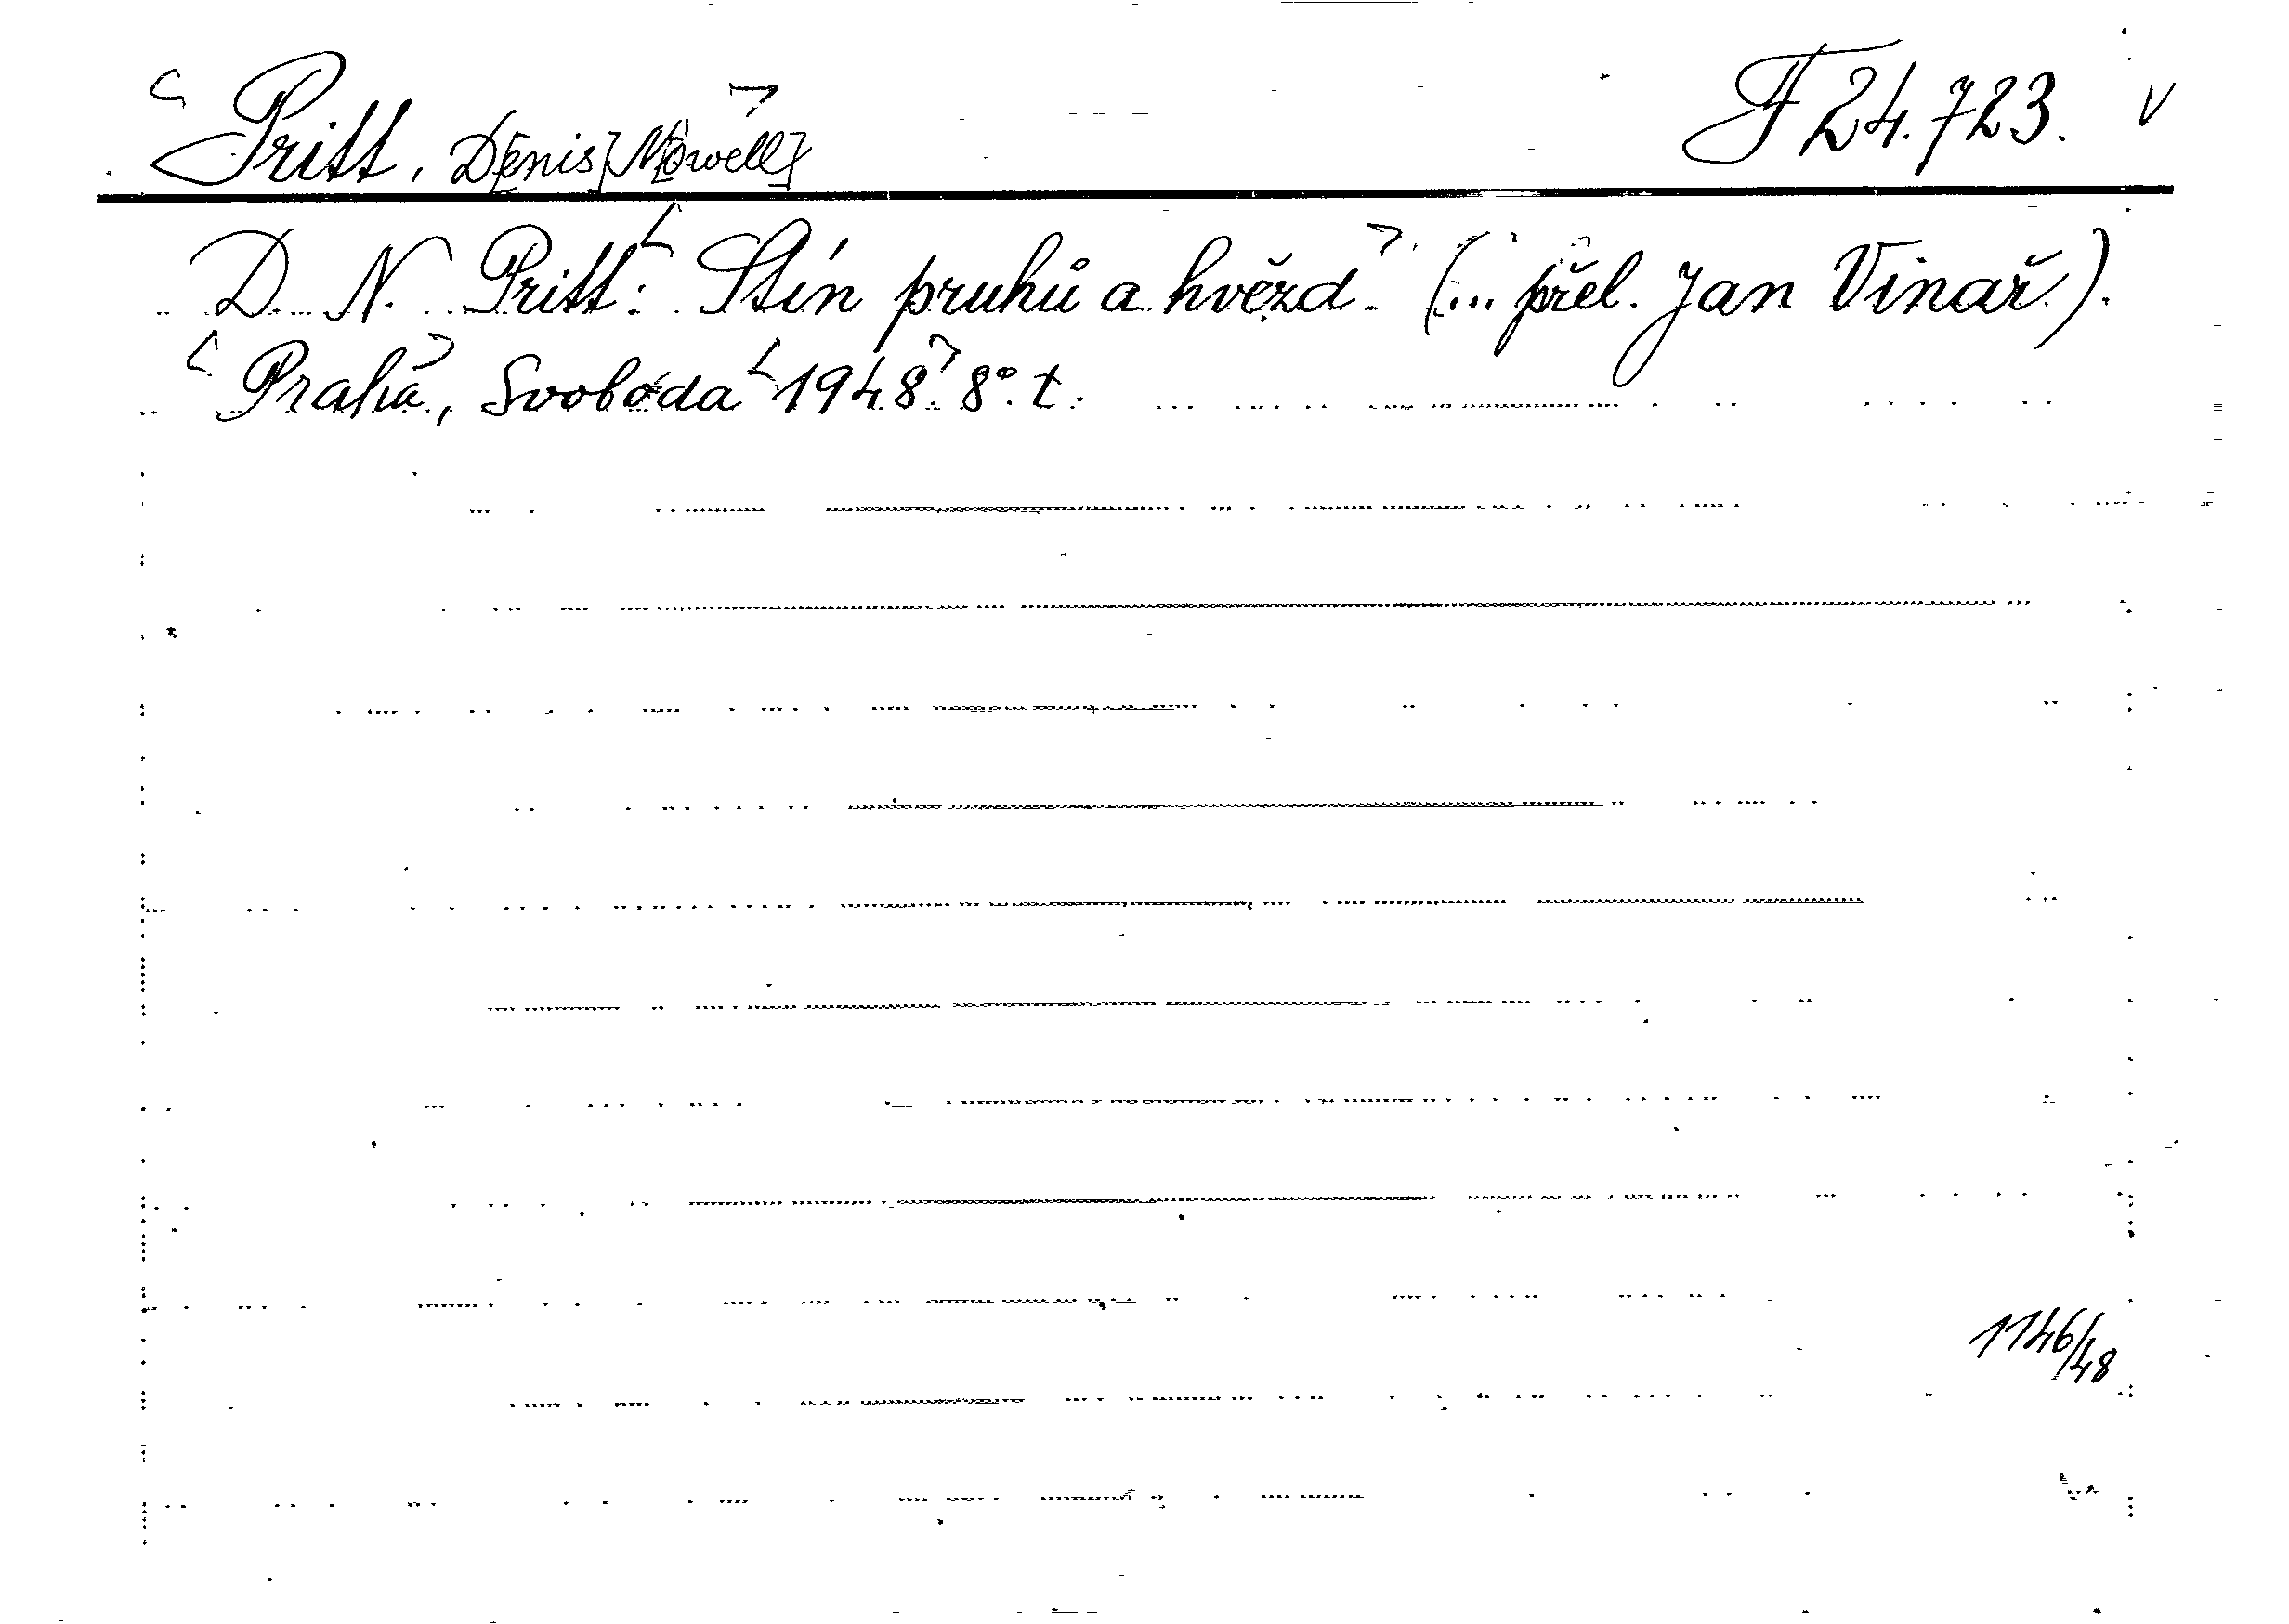 Pritt, D[enis] N[owell] F 24.723. V
D. N. Pritt: Stín pruhů a hvězd. (... přel. Jan Vinař.).
Praha, Svoboda 1948. 8°. t.
1146/48